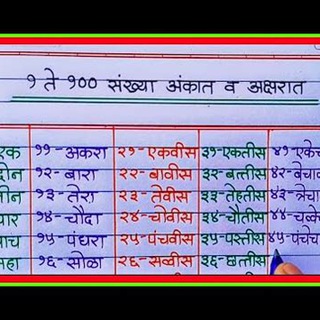 १ ते १०० संख्या अंकात व अक्षरात
एक ११-अकरा २१-एकवीस ३१-एकतीस ४१-एकेच
दोन १२-बारा २२-बावीस ३२-बत्तीस ४२-बेचा
तीन १३-तेरा २३-तेवीस ३३-तेहतीस ४३-त्रेचा
चार १४-चौदा २४-चोवीस ३४-चौतीस ४४-चव्वे
पाच १५-पंधरा २५-पंचवीस ३५-पस्तीस ४५-पंचेच
सहा १६-सोळा २६-सव्वीस ३६-छत्तीस